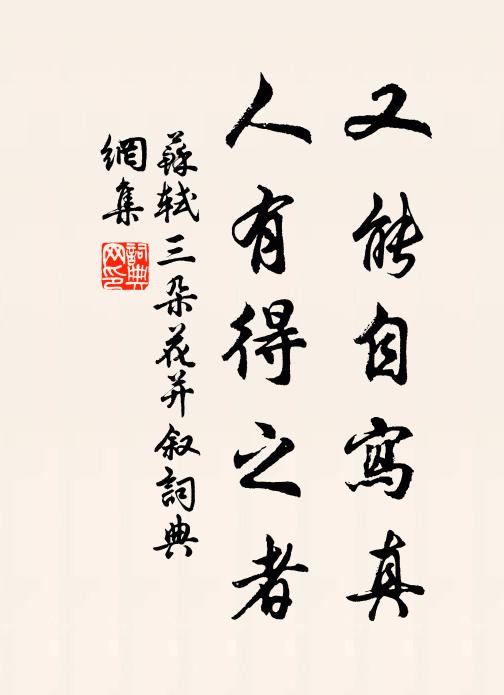 又能自寫真
人有得之者
蘇軾三朵花并叙詞典
網集
詞典
网印